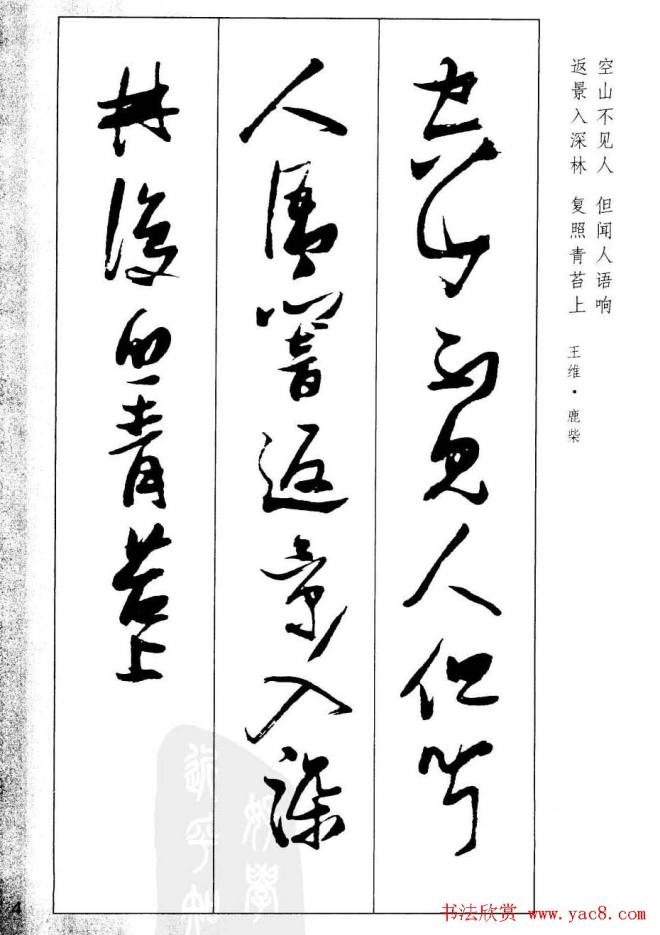 空山不见人 但闻人语响
返景入深林 复照青苔上 王维·鹿柴
空山不見人但聞
人語響返景入深
林復照青苔上
4
书法欣赏 www.yac8.com